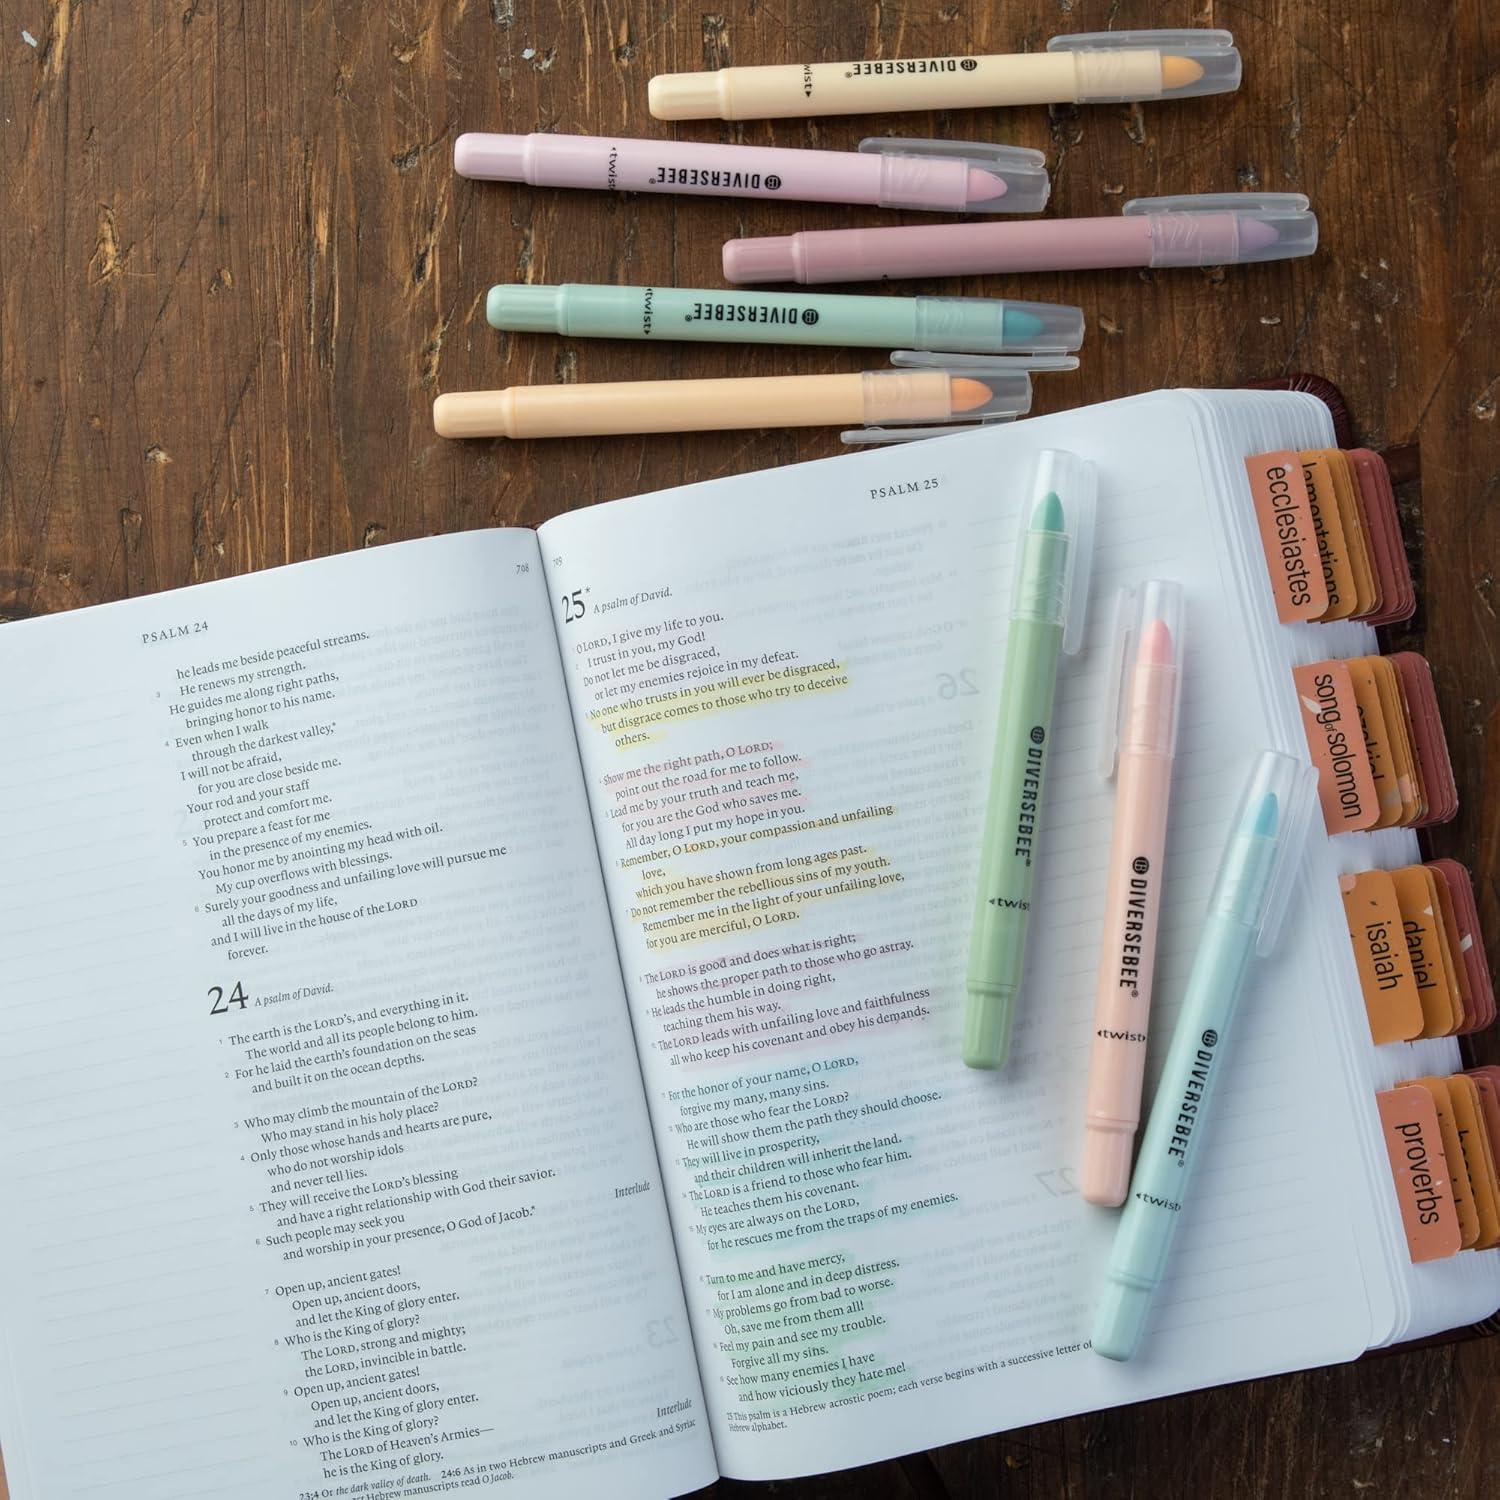 DIVERSEBEE®
twist
DIVERSEBEE®
twist
DIVERSEBEE®
twist
708
PSALM 24
he leads me beside peaceful streams.
3 He renews my strength.
He guides me along right paths,
bringing honor to his name.
4 Even when I walk
through the darkest valley,*
I will not be afraid,
for you are close beside me.
Your rod and your staff
protect and comfort me.
5 You prepare a feast for me
in the presence of my enemies.
You honor me by anointing my head with oil.
My cup overflows with blessings.
6 Surely your goodness and unfailing love will pursue me
all the days of my life,
and I will live in the house of the LORD
forever.
24 A psalm of David.
1 The earth is the LORD'S, and everything in it.
The world and all its people belong to him.
2 For he laid the earth's foundation on the seas
and built it on the ocean depths.
3 Who may climb the mountain of the LORD?
Who may stand in his holy place?
4 Only those whose hands and hearts are pure,
who do not worship idols
and never tell lies.
5 They will receive the LORD'S blessing
and have a right relationship with God their savior.
6 Such people may seek you
and worship in your presence, O God of Jacob.*
Interlude
7 Open up, ancient gates!
Open up, ancient doors,
and let the King of glory enter.
8 Who is the King of glory?
The LORD, strong and mighty;
the LORD, invincible in battle.
9 Open up, ancient gates!
Open up, ancient doors,
and let the King of glory enter.
10 Who is the King of glory?
The LORD of Heaven's Armies—
he is the King of glory.
Interlude
23:4 Or the dark valley of death. 24:6 As in two Hebrew manuscripts and Greek and Syriac
Hebrew manuscripts read O Jacob.
709
PSALM 25
25* A psalm of David.
1 O LORD, I give my life to you.
2 I trust in you, my God!
Do not let me be disgraced,
or let my enemies rejoice in my defeat.
3 No one who trusts in you will ever be disgraced,
but disgrace comes to those who try to deceive
others.
4 Show me the right path, O LORD;
point out the road for me to follow.
5 Lead me by your truth and teach me,
for you are the God who saves me.
All day long I put my hope in you.
6 Remember, O LORD, your compassion and unfailing
love,
which you have shown from long ages past.
7 Do not remember the rebellious sins of my youth.
Remember me in the light of your unfailing love,
for you are merciful, O LORD.
8 The LORD is good and does what is right;
he shows the proper path to those who go astray.
9 He leads the humble in doing right,
teaching them his way.
10 The LORD leads with unfailing love and faithfulness
all who keep his covenant and obey his demands.
11 For the honor of your name, O LORD,
forgive my many, many sins.
12 Who are those who fear the LORD?
He will show them the path they should choose.
13 They will live in prosperity,
and their children will inherit the land.
14 The LORD is a friend to those who fear him.
He teaches them his covenant.
15 My eyes are always on the LORD,
for he rescues me from the traps of my enemies.
16 Turn to me and have mercy,
for I am alone and in deep distress.
17 My problems go from bad to worse.
Oh, save me from them all!
18 Feel my pain and see my trouble.
Forgive all my sins.
19 See how many enemies I have
and how viciously they hate me!
25 This psalm is a Hebrew acrostic poem; each verse begins with a successive letter of
Hebrew alphabet.
DIVERSEBEE®
twist
DIVERSEBEE®
twist
DIVERSEBEE®
twist
ecclesiastes
lamentations
song of solomon
isaiah
daniel
proverbs